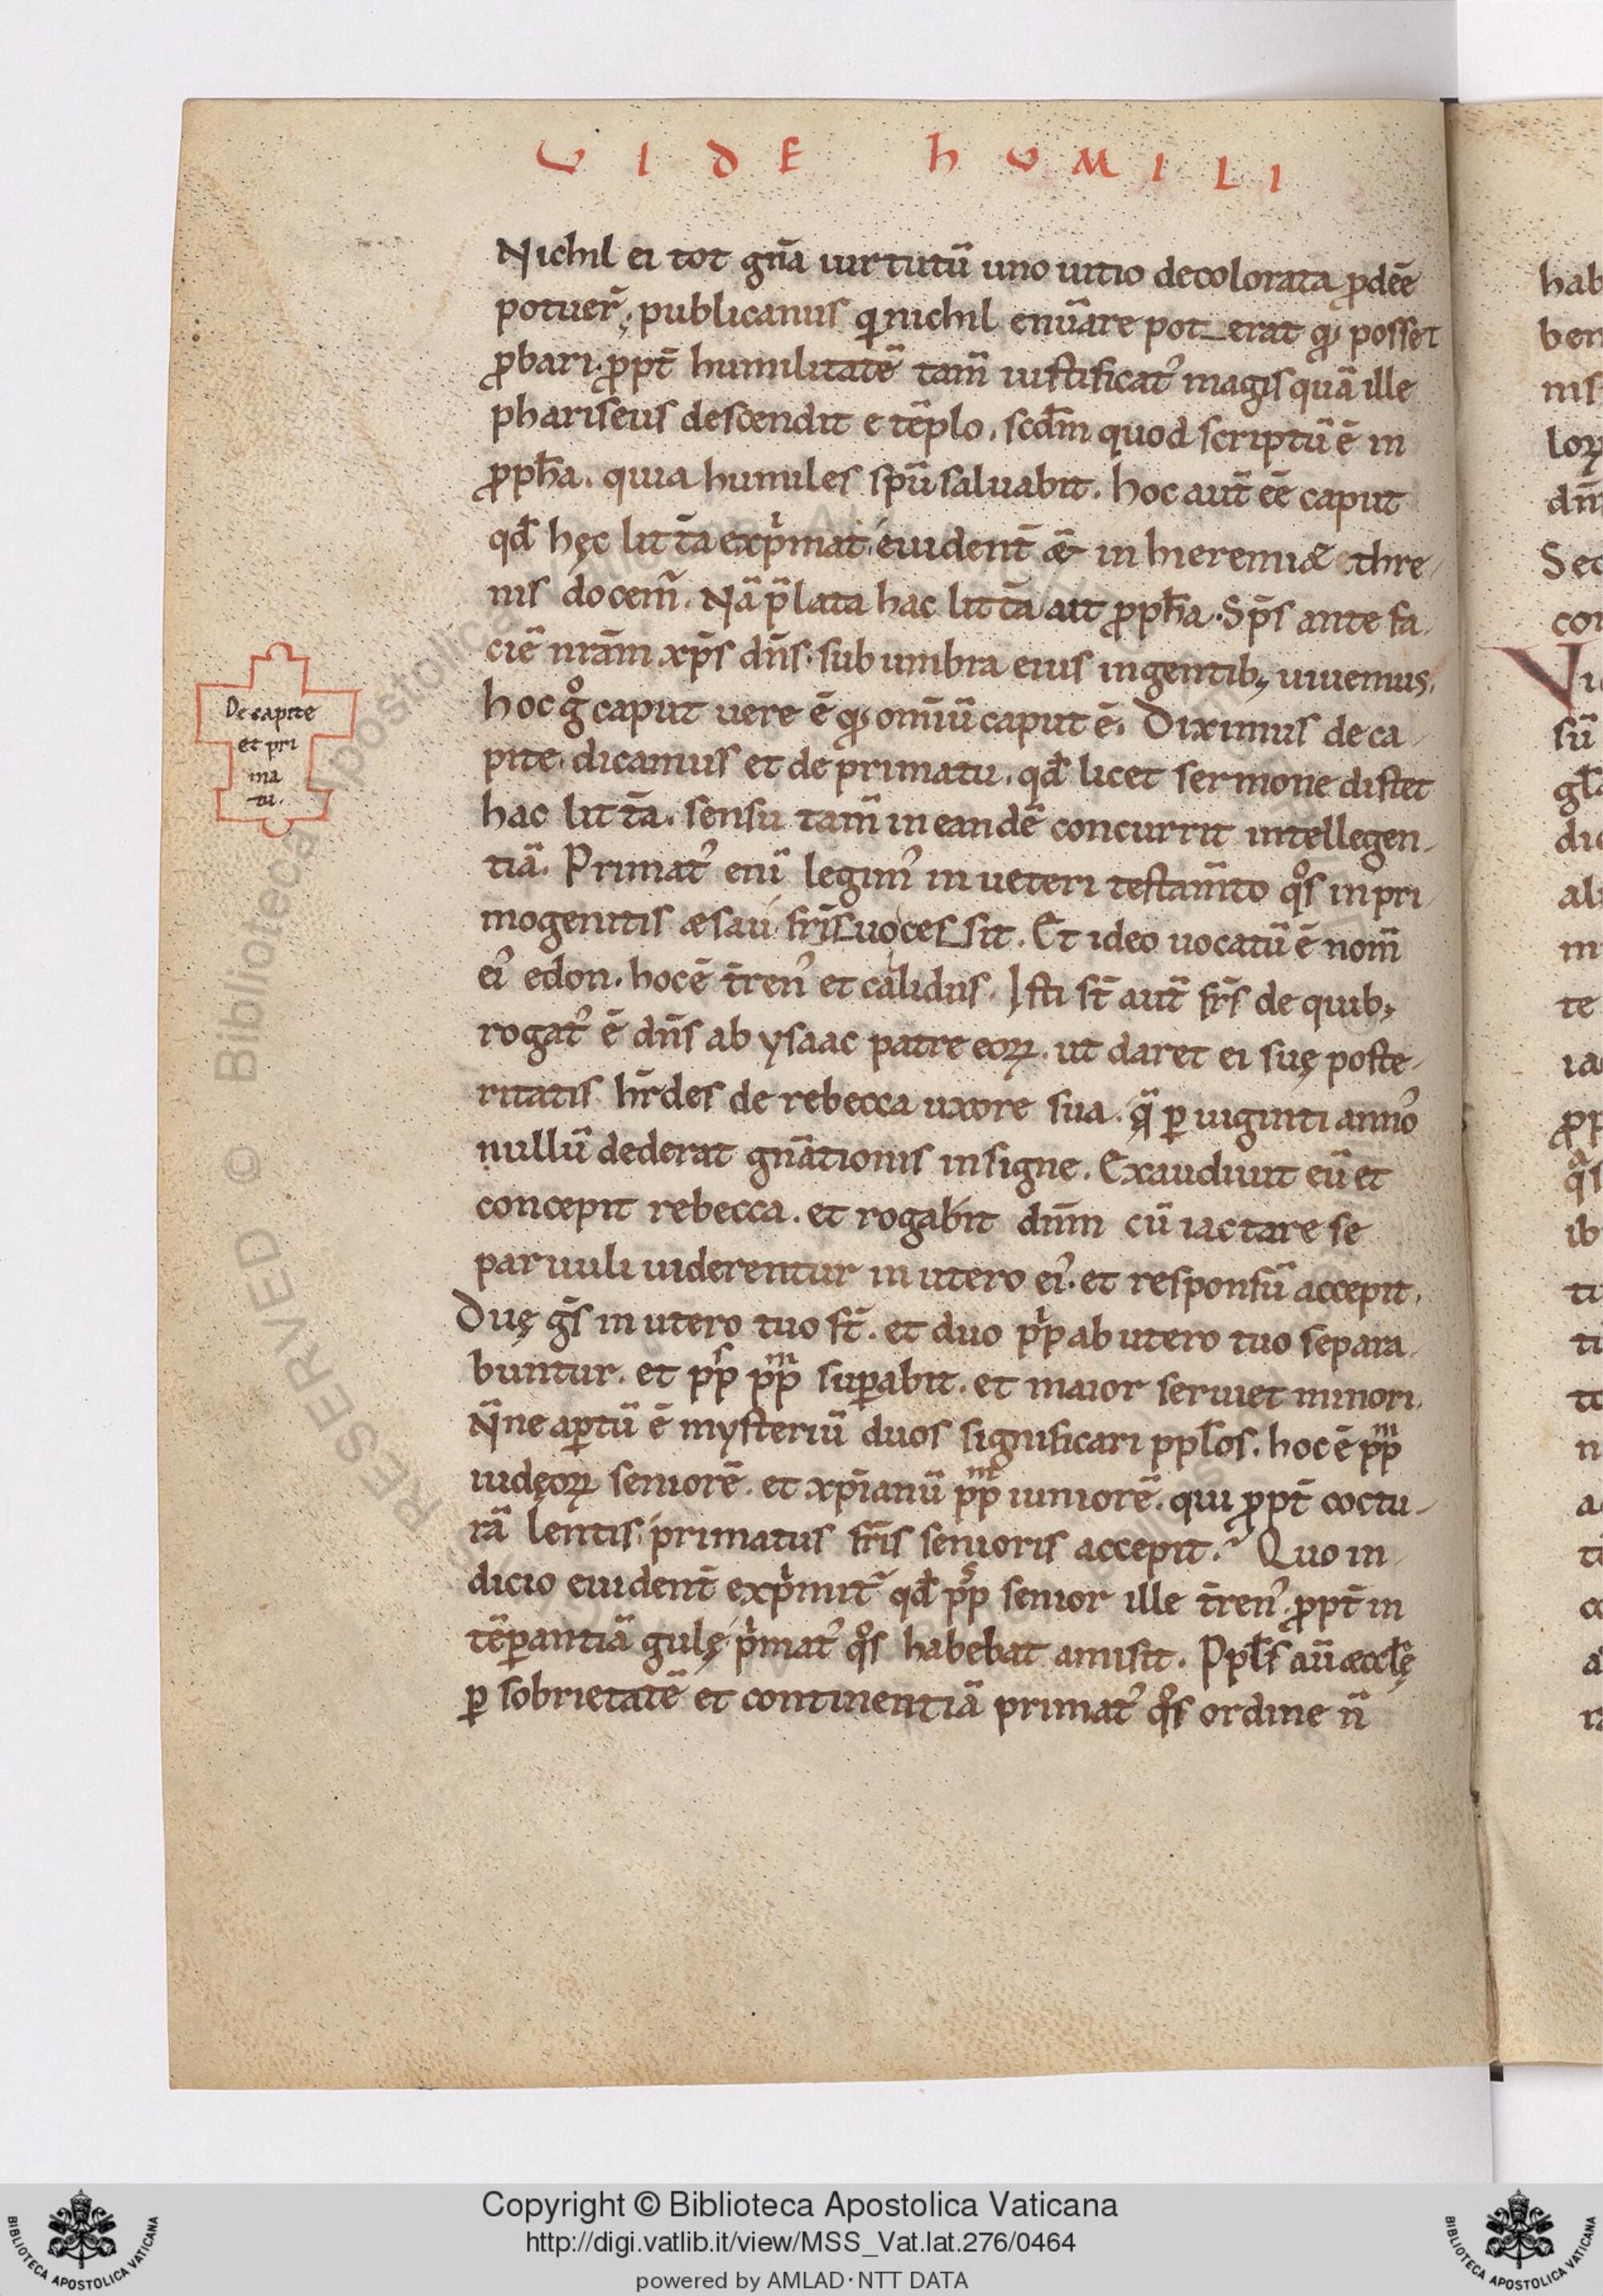 VIDE HUMILI
Nichil ei tot gn̄a uirtutū uno uitio decolorata ꝓdeē
potuer̄; publicanus qui nichil enūare pot erat qđ posset
ꝓbari. ꝓpt̄ humilitatē tam̄ iustificat᾽ magis quā ille
phariseus descendit e tēplo. scđm quod scriptū ē in
ꝓph̄a. quia humiles spū saluabit. hoc aut̄ eē caput
qđ hęc litt̄a exp̍mat. euident̄ ǣ in hieremiæ thre-
nis docem᷑. Nā p̄lata hac litt̄a ait ꝓph̄a. Sp̄s ante fa-
ciē nr̄am xp̄s dn̄s. sub umbra eius in gentib; uiuemus.
hoc gͦ caput uere ē qđ omniū caput ē. Diximus de ca-
pite. dicamus et de primatu. qđ licet sermone distet
hac litt̄a. sensu tam̄ in eandē concurrit intellegen-
tiā. Primat᾽ enī legim᾽ in ueteri testam̄to qͦs in pri-
mogenitis æsau fr̄is uoces sit. Et ideo uocatū ē nom̄
ei᾽ edon. hoc ē t̄ren᾽ et calidus. Isti st̄ aut̄ fr̄s de quib;
rogat᾽ ē dn̄s ab ysaac patre eoꝝ. ut daret ei suę poste-
ritatis hr̄des de rebecca uxore sua. q̄ ꝑ uiginti anno᾽
nullū dederat gnātionis insigne. Exaudiuit eū et
concepit rebecca. et rogabit dn̄m cū iactare se
paruuli uiderentur in utero ei᾽. et responsū accepit.
Duę gs̄ in utero tuo st̄. et duo pp̍ ab utero tuo separa-
buntur. et ppˢ ppᵐ suꝑabit. et maior seruiet minori.
N̄ne aꝑtū ē mysteriū duos significari ppl̄os. hoc ē ppᵐ
iudęoꝝ seniorē. et xp̄ianū ppᵐ iuniorē. qui ꝓpt̄ coctu-
rā lentis primatus fr̄is senioris accepit? Quo in-
dicio euident̄ exp̍mit᷑ qđ ppˢ senior ille t̄ren᾽. ꝓpt̄ in
tēꝑantiā gulę p̍mat᾽ qͦs habebat amisit. Ppl̄s aū æccl̄ę
ꝑ sobrietatē et continentiā primat᾽ qͦs ordine n̄
De capite
et pri
ma
tu.
hab
ben
nis
loꝝ
dn̄
Sec
con
Vi
sū
gl̄
dic
ali
m
te
ia
ꝓp
ib
ti
ti
Copyright © Biblioteca Apostolica Vaticana
http://digi.vatlib.it/view/MSS_Vat.lat.276/0464
powered by AMLAD·NTT DATA
BIBLIOTECA APOSTOLICA VATICANA
BIBLIOTECA APOSTOLICA VATICANA